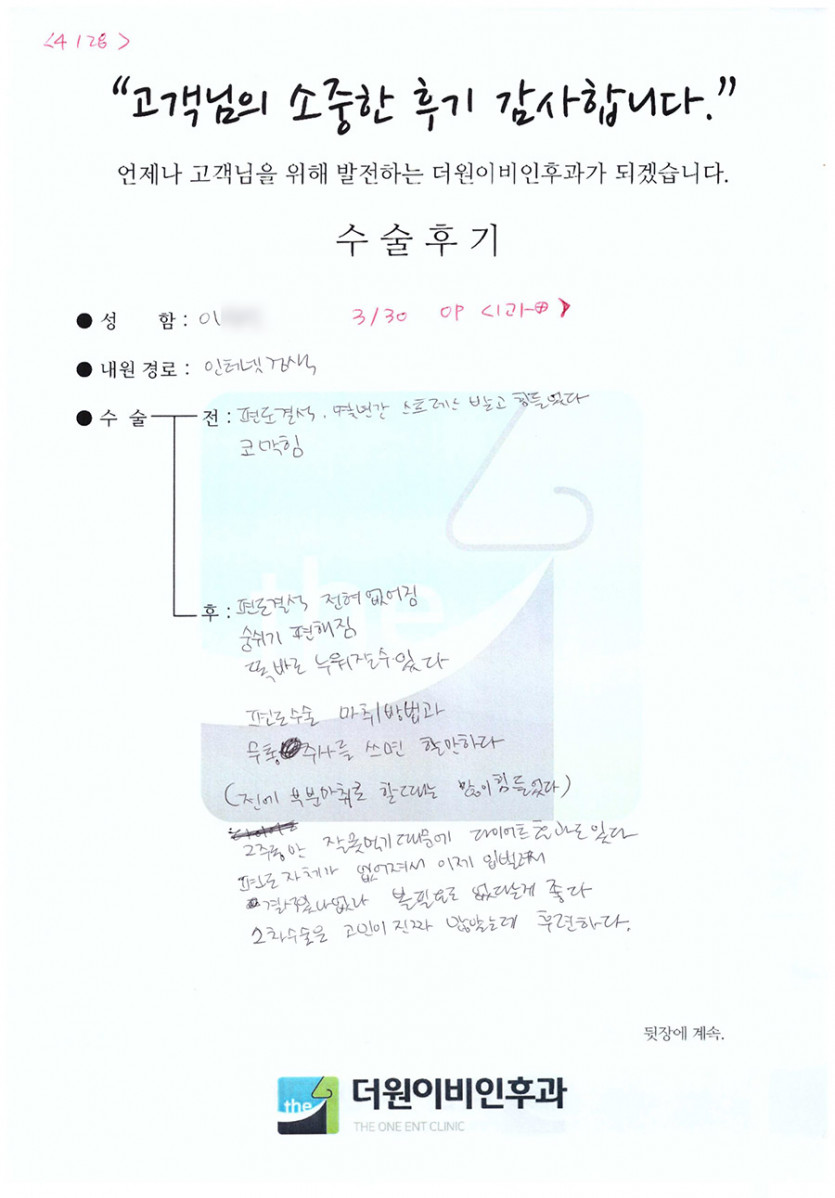 <4 / 28>
“고객님의 소중한 후기 감사합니다.”
언제나 고객님을 위해 발전하는 더원이비인후과가 되겠습니다.
수술후기
● 성 함 : 이
3/30 OP <1과-⊕>
● 내원 경로 : 인터넷검색
● 수 술 전 : 편도결석. 몇년간 스트레스 받고 힘들었다
코막힘
후 : 편도결석 전혀 없어짐
숨쉬기 편해짐
똑바로 누워잘수있다
편도수술 마취방법과
무통 주사를 쓰면 할만하다
(전에 부분마취로 할때는 많이힘들었다)
2주동안 잘못먹기때문에 다이어트 있다
편도자체가 없어져서 이제 입벌려서
있나없나 볼필요도 없다는게 좋다
2차수술은 고민이 진짜 많았는데 후련하다.
뒷장에 계속.
the
the 더원이비인후과
THE ONE ENT CLINIC